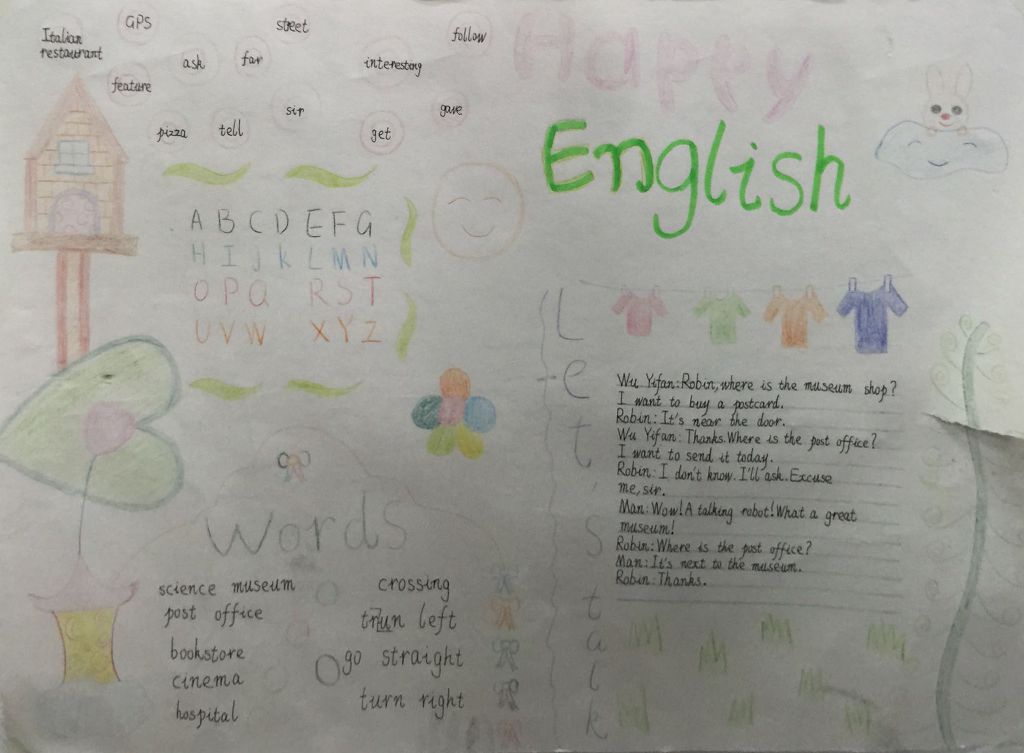 Italian
restaurant
GPS
street
follow
ask
far
interesting
feature
sir
gave
pizza
tell
get
Happy
English
A B C D E F G
H I J K L M N
O P Q R S T
U V W X Y Z
Let's talk
Wu Yifan: Robin, where is the museum shop?
I want to buy a postcard.
Robin: It's near the door.
Wu Yifan: Thanks. Where is the post office?
I want to send it today.
Robin: I don't know. I'll ask. Excuse
me, sir.
Man: Wow! A talking robot! What a great
museum!
Robin: Where is the post office?
Man: It's next to the museum.
Robin: Thanks.
Words
science museum
post office
bookstore
cinema
hospital
crossing
turn left
go straight
turn right